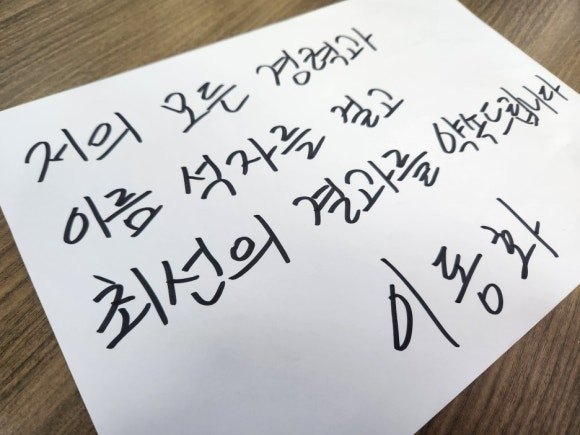 저의 모든 경력과
이름 석자를 걸고
최선의 결과를 약속드립니다
이동화